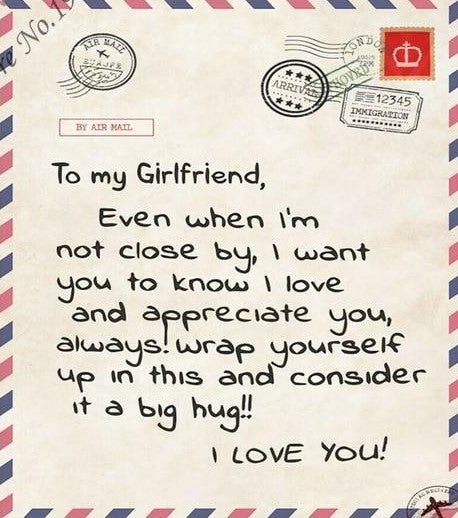 re No.1
AIR MAIL
EUROPE
LONDO
ARRIVA
12345
IMMIGRATION
BY AIR MAIL
To my Girlfriend,
Even when I'm
not close by, I want
you to know I love
and appreciate you,
always! wrap yourself
up in this and consider
it a big hug!!
I LOVE YOU!